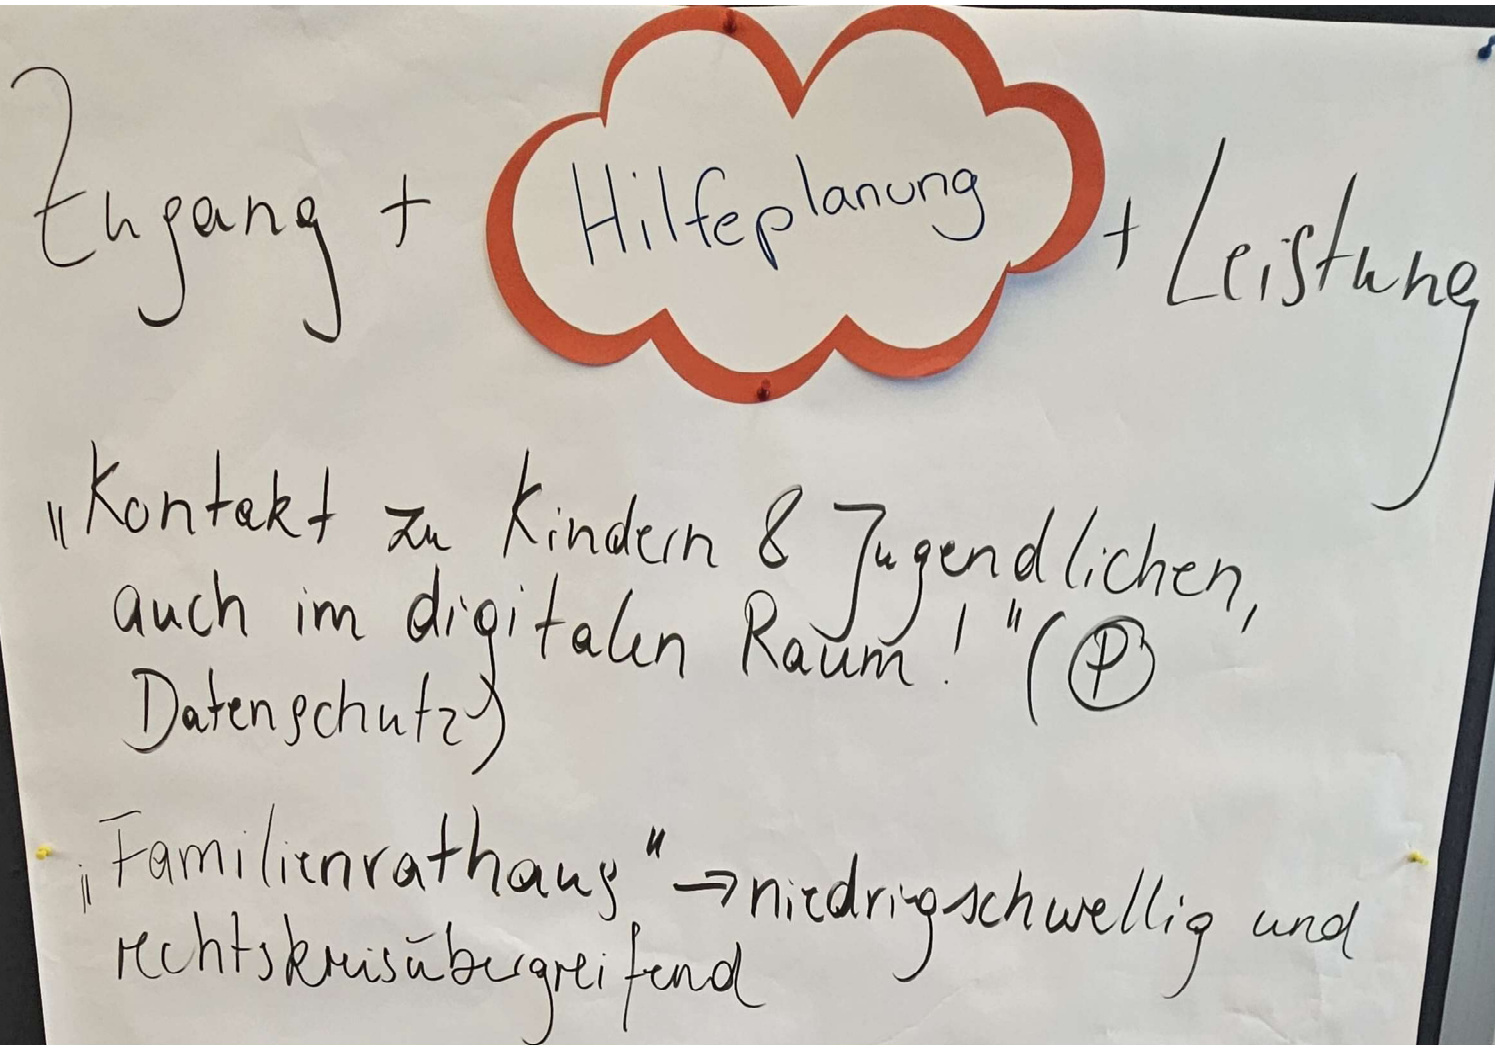 Zugang + Hilfeplanung + Leistung
„Kontakt zu Kindern & Jugendlichen,
auch im digitalen Raum!" (P
Datenschutz)
„Familienrathaus" → niedrigschwellig und
rechtskreisübergreifend